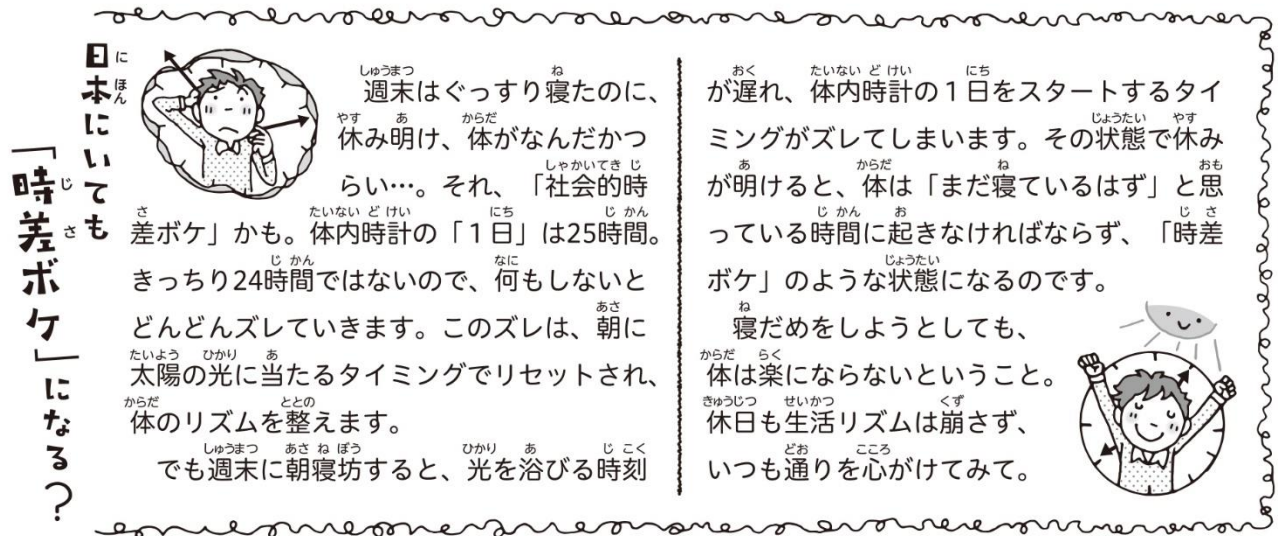 日本にいても
「時差ボケ」になる？
週末はぐっすり寝たのに、
休み明け、体がなんだかつ
らい…。それ、「社会的時
差ボケ」かも。体内時計の「１日」は25時間。
きっちり24時間ではないので、何もしないと
どんどんズレていきます。このズレは、朝に
太陽の光に当たるタイミングでリセットされ、
体のリズムを整えます。
でも週末に朝寝坊すると、光を浴びる時刻
が遅れ、体内時計の１日をスタートするタイ
ミングがズレてしまいます。その状態で休み
が明けると、体は「まだ寝ているはず」と思
っている時間に起きなければならず、「時差
ボケ」のような状態になるのです。
寝だめをしようとしても、
体は楽にならないということ。
休日も生活リズムは崩さず、
いつも通りを心がけてみて。